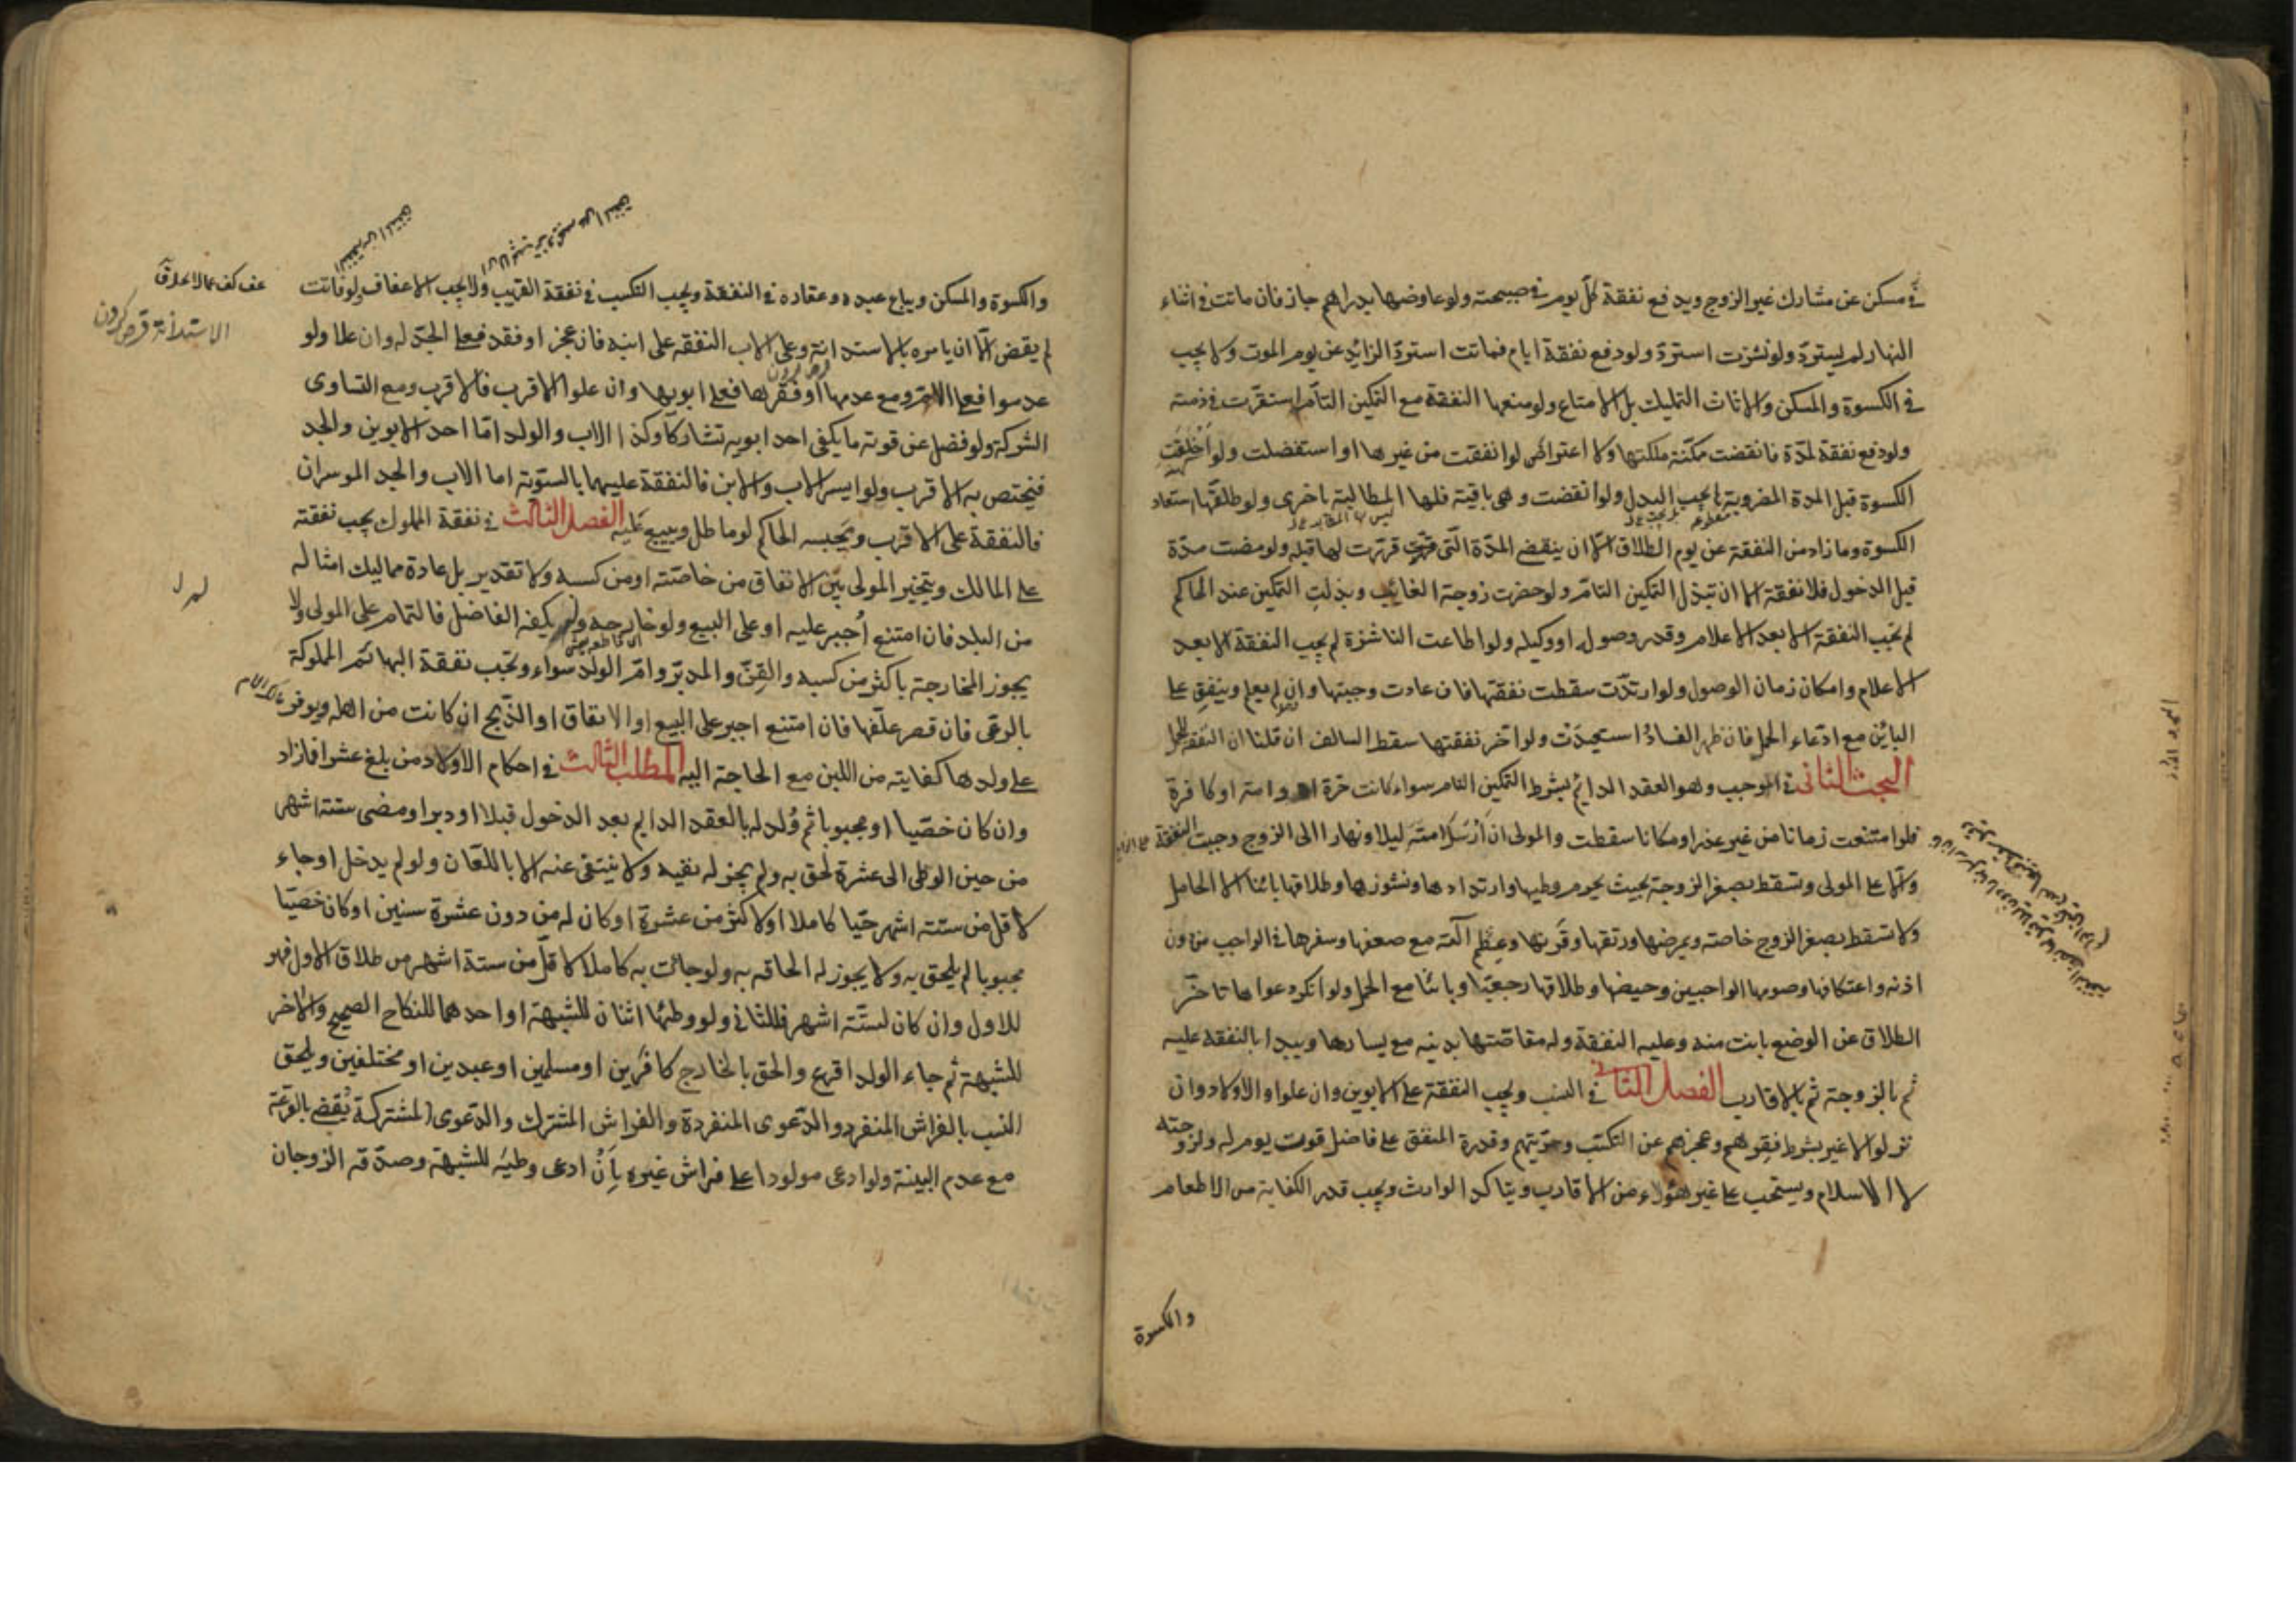 في مسكن عن مشارك غير الزوج ويدفع نفقة كل يوم في صبيحته ولو عاوضها بدراهم جاز فان ماتت في اثناء
النهار لم يستردّ ولو نشزت استردّ ولو دفع نفقة ايام فماتت استردّ الزائد عن يوم الموت ولا يجب
في الكسوة والمسكن والاثاث التمليك بل الامتاع ولو منعها النفقة مع التمكين التام استقرّت في ذمته
ولو دفع نفقة لمدّة فانقضت مكّنته ملكتها ولا اعتراض لو انفقت من غيرها او استفضلت ولو اَخْلقت
الكسوة قبل المدة المضروبة لم يجب البدل ولو انقضت وهى باقية فلها المطالبة باخرى ولو طلقها استعاد
الكسوة وما زاد من النفقة عن يوم الطلاق الا ان ينقضى المدّة التى قررت لها قبله ولو مضت مدّة
قبل الدخول فلا نفقة الا ان تبذل التمكين التام ولو حضرت زوجة الغائب وبذلت التمكين عند الحاكم
لم تجب النفقة الا بعد الاعلام وقدر وصوله او وكيله ولو اطاعت الناشزة لم يجب النفقة الا بعد
الاعلام وامكان زمان الوصول ولو ارتدّت سقطت نفقتها فان عادت وجبتها وان لم يعلم وينفق على
البائن مع ادّعاء الحمل فان ظهر الفساد استعيدت ولو اخر نفقتها سقط السالف ان قلنا ان النفقة للحمل
البحث الثانى في الموجب وهو العقد الدائم بشرط التمكين التام سواء كانت حرة او امة او كافرة
فلو امتنعت زمانا من غير عذر او مكانا سقطت والمولى ان اَرْسَلَ امته ليلا ونهارا الى الزوج وجبت النفقة على الزوج
والا على المولى وتسقط بصغر الزوجة بحيث يحرم وطيها وارتدادها ونشوزها وطلاقها بائنا الا الحامل
ولا تسقط بصغر الزوج خاصته وبمرضها ورتقها وقرنها وعظم آلته مع صغرها وسفرها في الواجب من دون
اذنه واعتكافها وصومها الواجبين وحيضها وطلاقها رجعيّا وبائنا مع الحمل ولو انكر دعواها تاخّر
الطلاق عن الوضع بانت منه وعليه النفقة وله مقاصّتها بدينه مع يسارها ويبدا بالنفقة عليه
ثم بالزوجة ثم بالاقارب الفصل الثانى في النسب ويجب النفقة على الابوين وان علوا والاولاد وان
نزلوا لا غير بشرط فقرهم وعجزهم عن التكسّب وحرّيتهم وقدرة المنفق على فاضل قوت يوم له ولزوجته
لا الاسلام ويستحب على غير هؤلاء من الاقارب ويتاكد الوارث ويجب قدر الكفاية من الاطعام
والكسوة
والكسوة والمسكن ويباع عبده وعقاره في النفقة ويجب التكسب في نفقة القريب ولا يجب الاعفاف ولو فاتت
لم يقض الّا ان يامره بالاستدانة وعلى الاب النفقة على ابنه فان عجز او فقد فعلى الجدّ له وان علا ولو
عدموا فعلى الام ومع عدمها او فقرها فعلى ابويها وان علوا الاقرب فالاقرب ومع التساوى
الشركة ولو فضل عن قوته ما يكفى احد ابويه تشاركا وكذا الاب والولد امّا احد الابوين والجد
فيختص به الاقرب ولو ايسر الاب والابن فالنفقة عليهما بالسّويّة اما الاب والجد الموسران
فالنفقة على الاقرب ويحبسه الحاكم لو ماطل ويبيع عَليه الفصل الثالث في نفقة المملوك يجب نفقته
على المالك ويتخير المولى بَيْن الانفاق من خاصّته او من كسبه ولا تقدير بل عادة مماليك امثاله
من البلد فان امتنع اُجبر عليه او على البيع ولو خارجه ولم يكفه الفاضل فالتمام على المولى ولا
يجوز المخارجة باكثر من كسبه والقِنّ والمدبّر وامّ الولد سواء وتجب نفقة البهائم المملوكة
بالرعى فان قصر علّفها فان امتنع اجبر على البيع او الانفاق او الذّبح ان كانت من اهله ويوفر
على ولدها كفايته من اللبن مع الحاجة اليه المطلب الثالث في احكام الاولاد من بلغ عشرا فازاد
وان كان خصّيا او مجبوبا ثم وُلد له بالعقد الدايم بعد الدخول قبلا او دبرا ومضى ستة اشهر
من حين الوطى الى عشرة لحق به ولم يجز له نفيه ولا ينتفى عنه الا باللعّان ولو لم يدخل او جاء
لاقل من ستة اشهر حيّا كاملا او لاكثر من عشرة او كان له من دون عشرة سنين او كان خصّيا
مجبوبا لم يلحق به ولا يجوز له الحاقه به ولو جائت به كاملا لاقلّ من ستة اشهر من طلاق الاول فهو
للاول وان كان لستّة اشهر فللثانى ولو وطئها اثنان للشبهة او احدهما للنكاح الصحيح والاخر
للشبهة ثم جاء الولد اقرع والحق بالخارج كافرين او مسلمين او عبدين او مختلفين ويلحق
النسب بالفراش المنفرد والدّعوى المنفردة والفراش المشترك والدّعوى المشتركة يُقضى بالقرعة
مع عدم البينة ولو ادعى مولودا على فراش غيره بِاَنْ ادعى وطيَه للشبهة وصدّقه الزوجان
الاستدانة قرض كردن